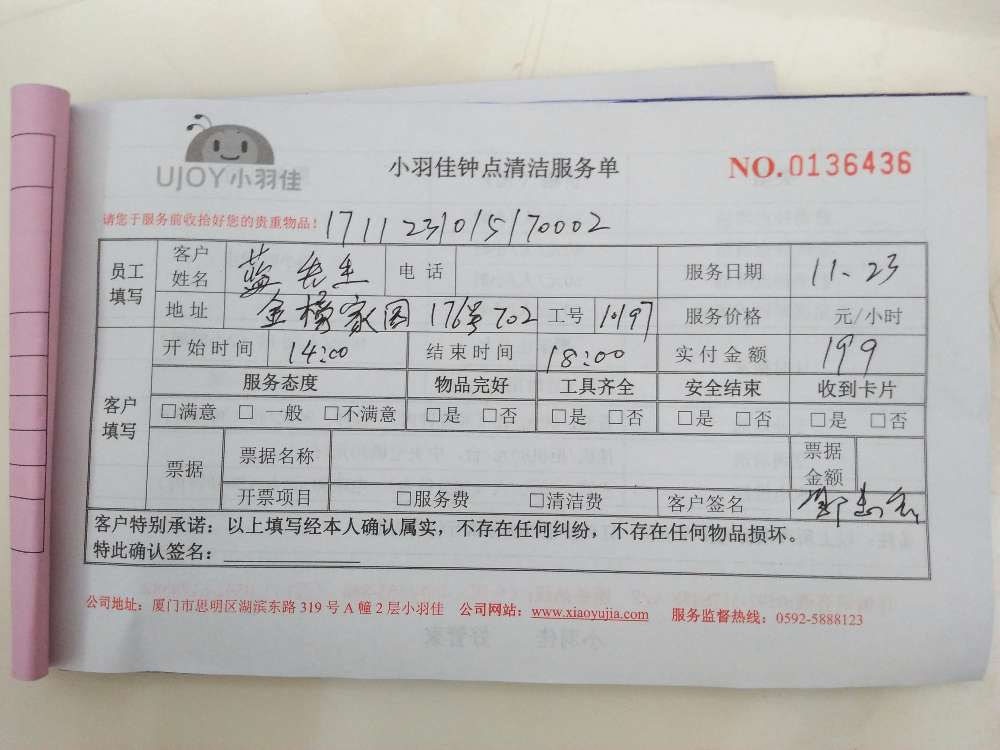 UJOY小羽佳
小羽佳钟点清洁服务单
NO.0136436
请您于服务前收拾好您的贵重物品!
171123/015170002
员工填写 客户姓名 蓝先生 电话 服务日期 11.23
地址 金樽家园 176号702 工号 10197 服务价格 元/小时
客户填写 开始时间 14:00 结束时间 18:00 实付金额 199
服务态度 物品完好 工具齐全 安全结束 收到卡片
□满意 □一般 □不满意 □是 □否 □是 □否 □是 □否 □是 □否
票据 票据名称 票据金额
开票项目 □服务费 □清洁费 客户签名
客户特别承诺:以上填写经本人确认属实,不存在任何纠纷,不存在任何物品损坏。
特此确认签名:
公司地址:厦门市思明区湖滨东路 319 号 A 幢 2 层小羽佳 公司网站:www.xiaoyujia.com 服务监督热线:0592-5888123